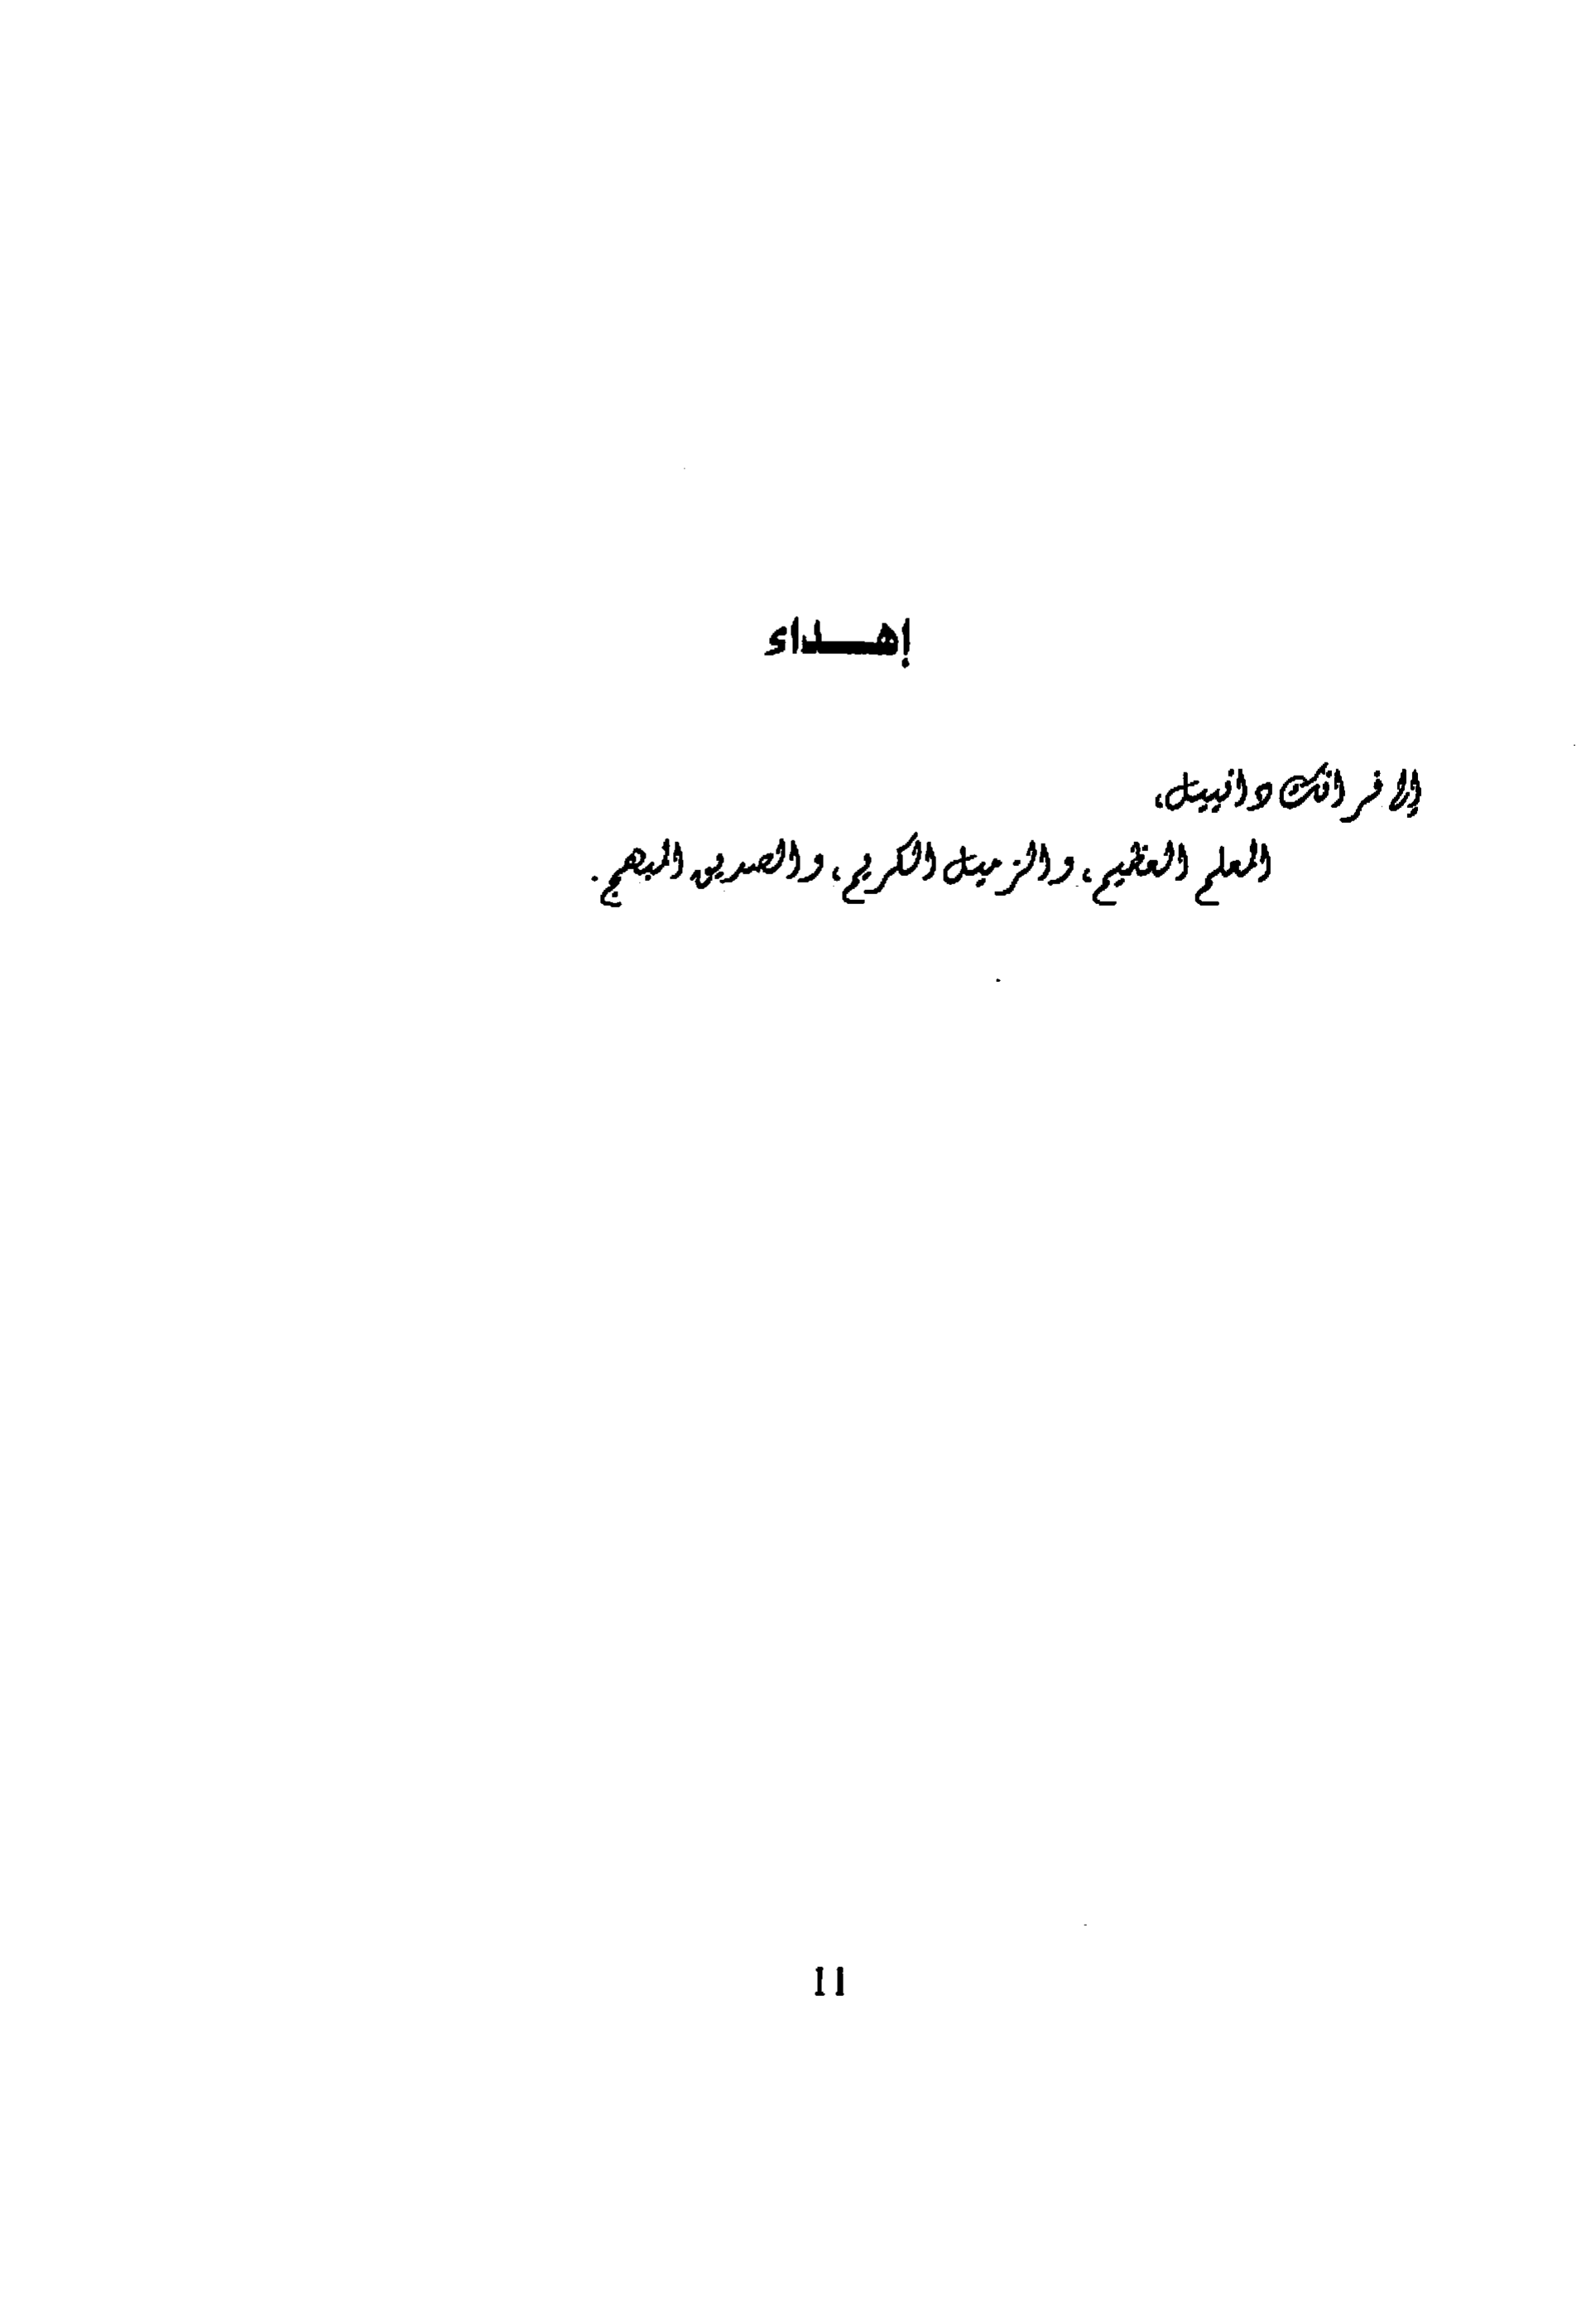 إهــداء
إلى فرانك دانييل،
المعلم العظيم، والزميل الكريم، والصديق البهيج.
11